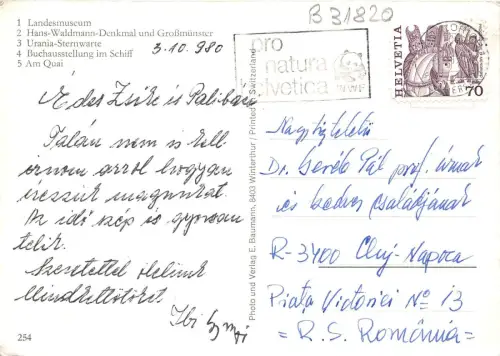 1 Landesmuseum
2 Hans-Waldmann-Denkmal und Großmünster
3 Urania-Sternwarte
4 Buchausstellung im Schiff
5 Am Quai
3.10.980
B 31820
pro
natura
helvetica
WWF
HELVETIA
70
Édes Zsike és Palibá
Talán nem is kell
írnom arról hogyan
érezzük magunkat.
Az idő szép és gyorsan
telik.
Szeretettel ölelünk
Mindkettőtöket.
Ibi
254
Photo und Verlag E. Baumann, 8403 Winterthur / Printed in Switzerland
Nagytiszteletű
Dr. Geréb Pál prof. úrnak
és kedves családjának
R-3400 Cluj-Napoca
Piața Victoriei No 13
= R. S. România =